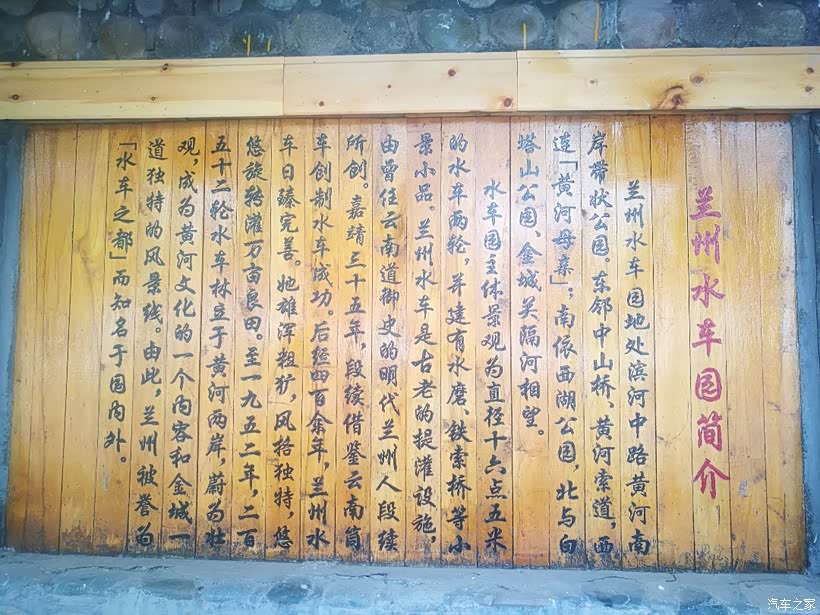 兰州水车园简介
兰州水车园地处滨河中路黄河南
岸带状公园。东邻中山桥、黄河索道，西
连「黄河母亲」；南依西湖公园，北与白
塔山公园、金城关隔河相望。
水车园主体景观为直径十六点五米
的水车两轮，并建有水磨、铁索桥等小
景小品。兰州水车是古老的提灌设施，
由曾任云南道御史的明代兰州人段续
所创。嘉靖三十五年，段续借鉴云南筒
车创制水车成功。后经四百余年，兰州水
车日臻完善。她雄浑粗犷，风格独特，悠
悠旋转灌万亩良田。至一九五二年，二百
五十二轮水车林立于黄河两岸，蔚为壮
观，成为黄河文化的一个内容和金城一
道独特的风景线。由此，兰州被誉为
「水车之都」而知名于国内外。
汽车之家